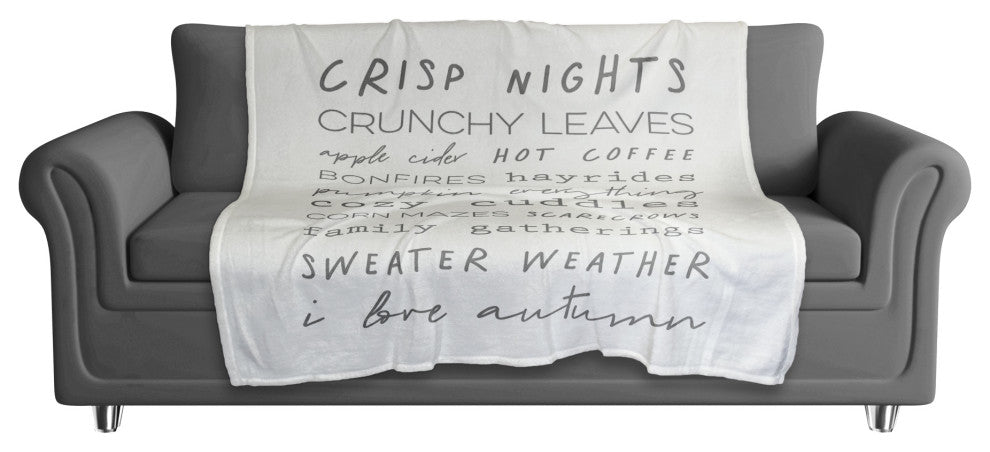 CRISP NIGHTS
CRUNCHY LEAVES
apple cider HOT COFFEE
BONFIRES hayrides
pumpkin everything
cozy cuddles
CORN MAZES SCARECROWS
family gatherings
SWEATER WEATHER
i love autumn